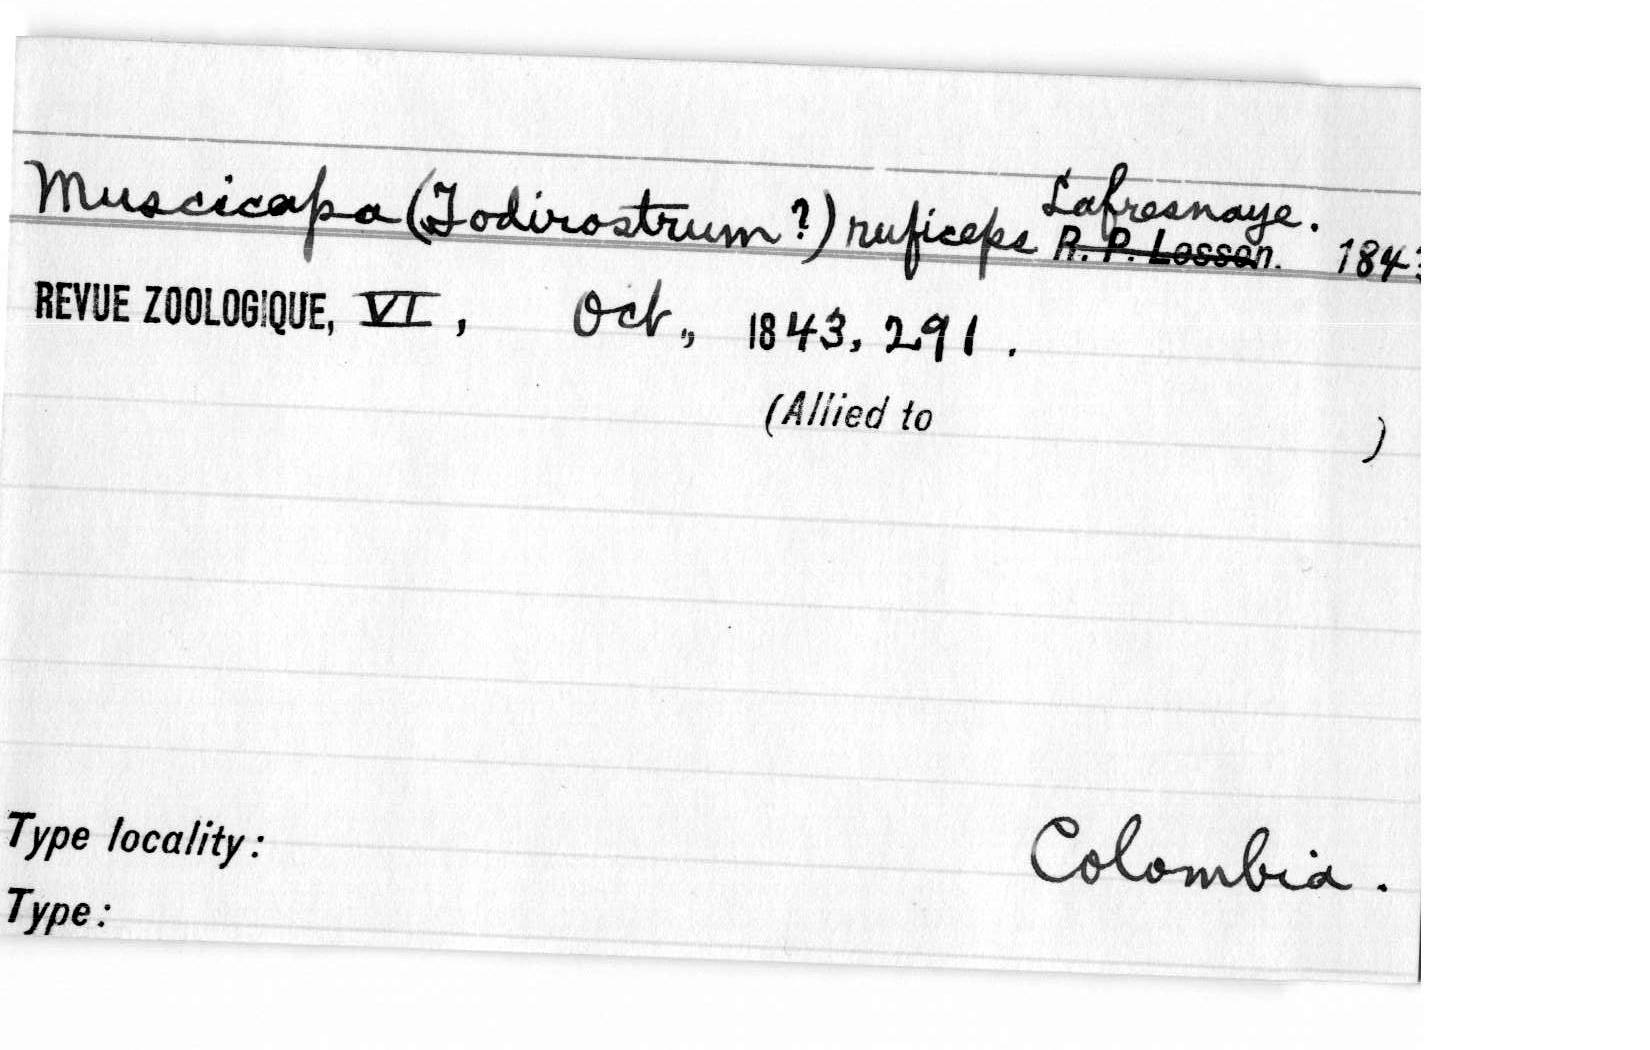 Muscicapa (Todirostrum?) ruficeps Lafresnaye. R. P. Lesson. 1843
REVUE ZOOLOGIQUE, VI, Oct., 1843, 291.
(Allied to )
Type locality: Colombia.
Type: